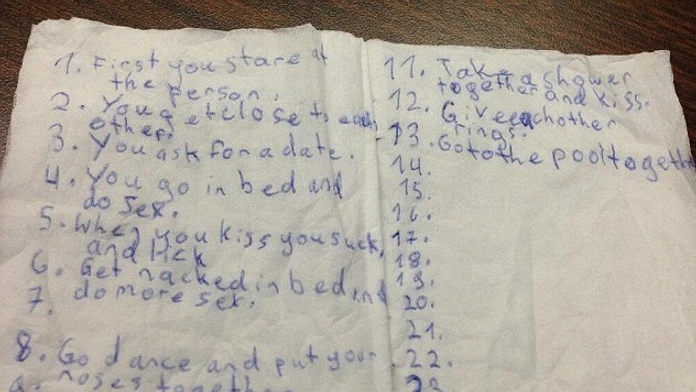 1. First you stare at
the person.
2. You get close to each
other.
3. You ask for a date.
4. You go in bed and
do sex.
5. When you kiss you suck
and lick
6. Get nacked in bed and
7. do more sex.
8. Go dance and put your
noses together
11. Take a shower
together and kiss.
12. Give eachother
rings.
13. Go to the pool together
14.
15.
16.
17.
18.
19.
20.
21.
22.
23